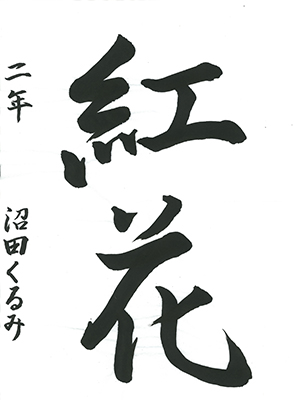 紅花
二年 沼田くるみ